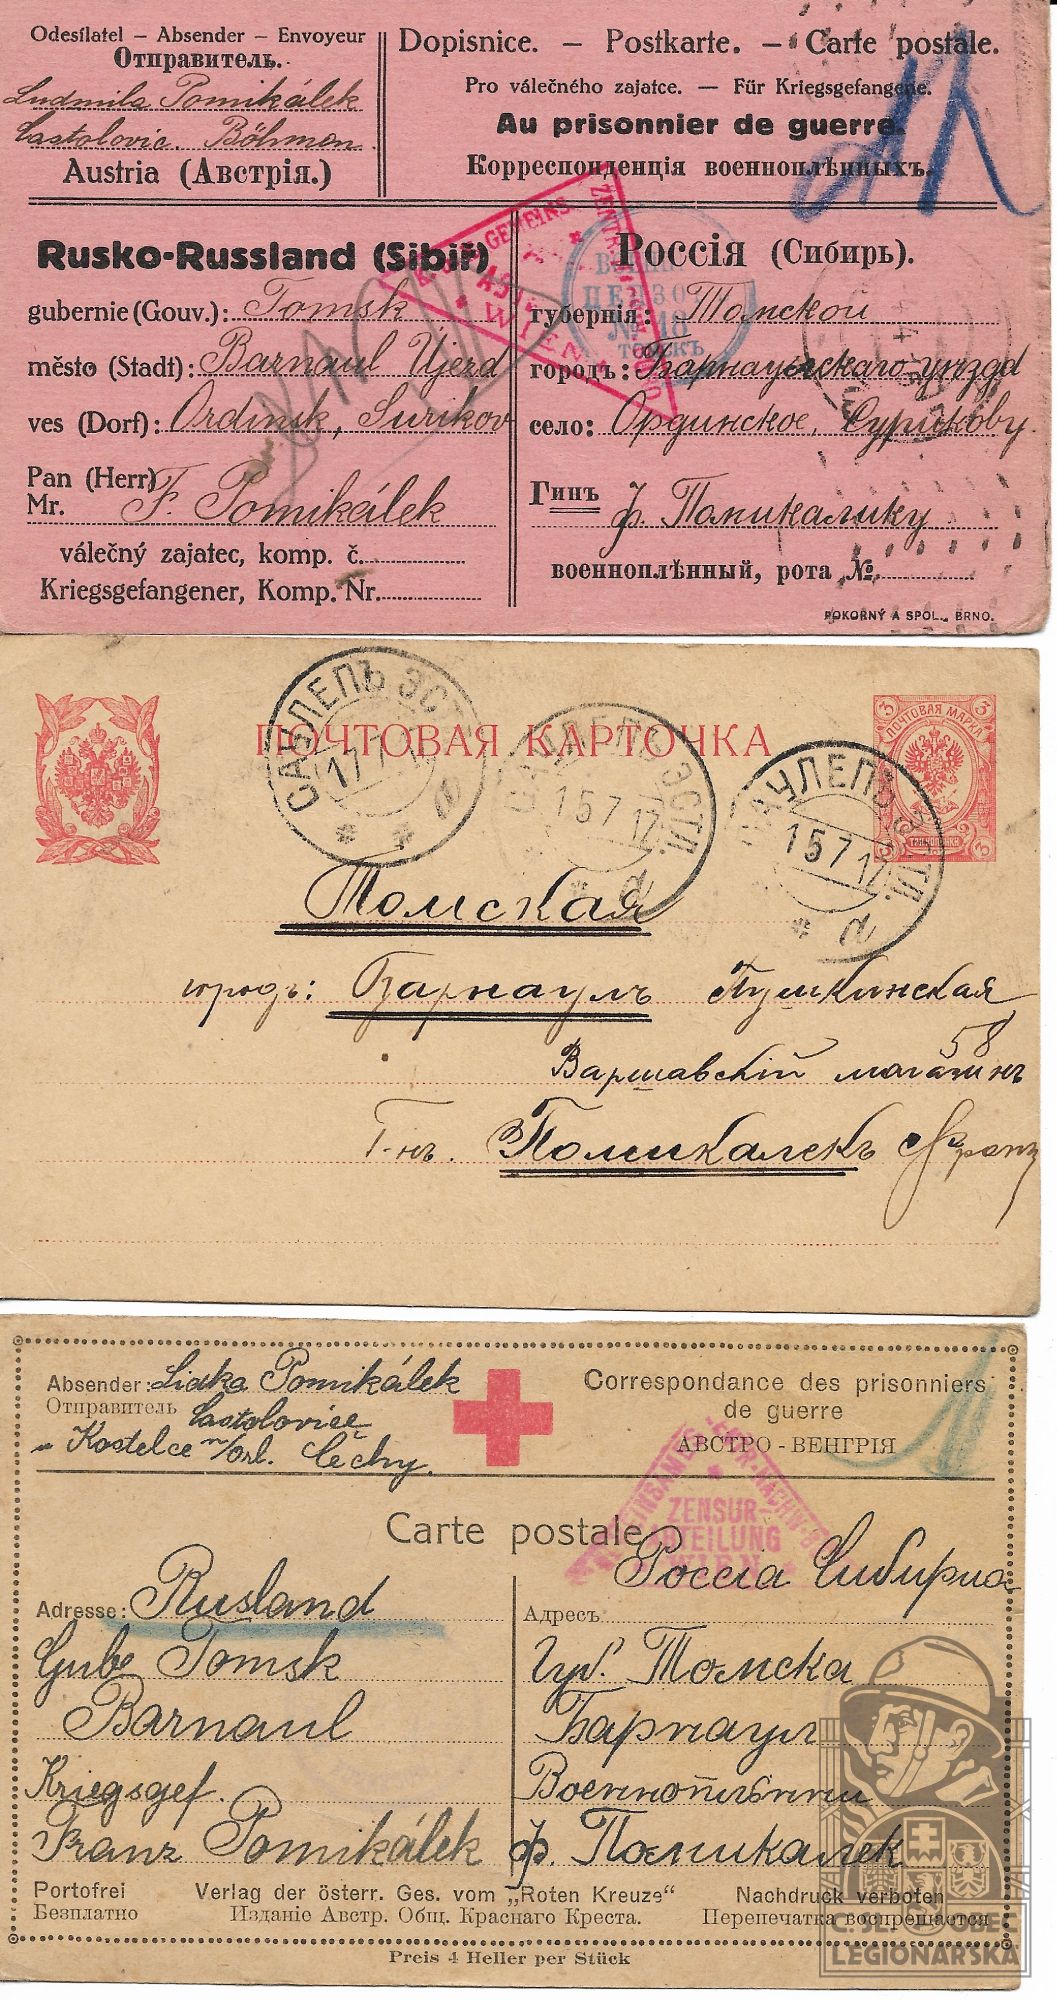 Odesílatel – Absender – Envoyeur
Отправитель.
Ludmila Pomikálek
Častolovic. Böhmen
Austria (Австрія.)
Dopisnice. – Postkarte. – Carte postale.
Pro válečného zajatce. – Für Kriegsgefangene.
Au prisonnier de guerre.
Корреспонденція военноплѣнныхъ.
Rusko-Russland (Sibiř)
gubernie (Gouv.): Tomsk
město (Stadt): Barnaul Ujezd
ves (Dorf): Ordinsk, Surikov
Pan (Herr)
Mr. F. Pomikálek
válečný zajatec, komp. č.
Kriegsgefangener, Komp. Nr.
Россія (Сибирь).
губернія: Томской
городъ: Барнаульскаго уѣзда
село: Ординское, Сурикову.
Гинъ ф. Помикалику
военноплѣнный, рота №
POKORNÝ A SPOL., BRNO.
WIEN
ПОЧТОВАЯ КАРТОЧКА
ПОЧТОВАЯ МАРКА
3 3
3 3
САУЛЕПЪ ЭСТЛ.
15 7 17
a
САУЛЕПЪ ЭСТЛ.
15 7 17
a
Томская
городъ: Барнаулъ Пушкинская
58
Варшавскій магазинъ
Г-нъ. Помикалекъ Франц
Absender: Lidka Pomikálek
Отправитель Častolovice
Kostelce n/Orl. Čechy.
Correspondance des prisonniers
de guerre
АВСТРО - ВЕНГРІЯ
ZENSUR-
ABTEILUNG
WIEN
Carte postale
Россіа Сибириа
Adresse: Rusland
Адресъ
Gub. Tomsk
Губ. Томска
Barnaul
Барнаул
Kriegsgef.
Военноплѣнни
Franz Pomikálek
ф. Помикалек
Portofrei
Безплатно
Verlag der österr. Ges. vom „Roten Kreuze“
Изданіе Австр. Общ. Краснаго Креста.
Nachdruck verboten
Перепечатка воспрещается
Preis 4 Heller per Stück
Č. SL. OBEC
LEGIONÁŘSKÁ